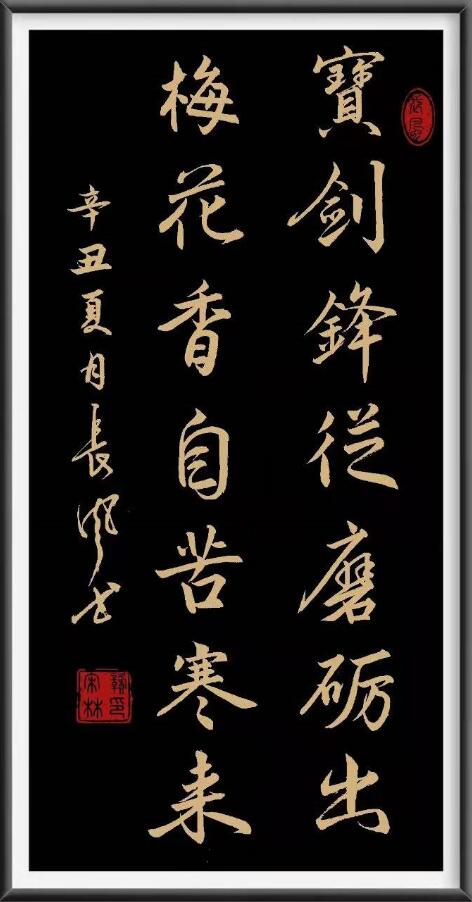 寶劍鋒從磨砺出
梅花香自苦寒来
辛丑夏月長风书